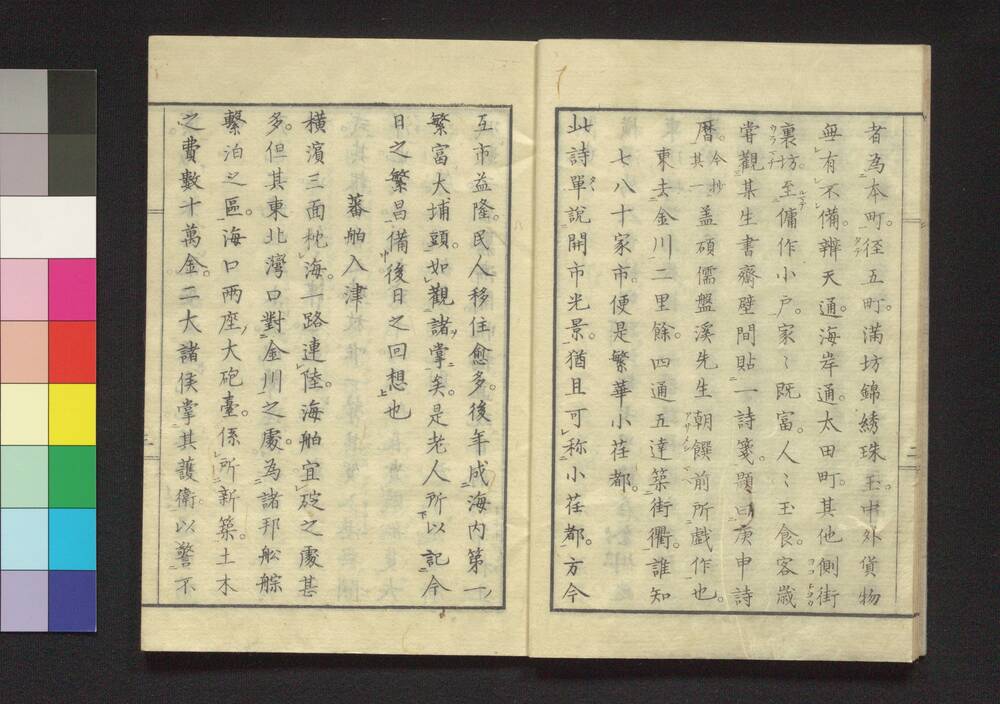 者為本町。径五町。満坊錦綉珠玉中外貨物
無有不備。辨天通。海岸通。太田町。其他側街
裏坊。至傭作小戸。家〻既富。人〻玉食。客歳
嘗観某生書齋壁間貼一詩箋。題曰庚申詩
暦。今抄其一盖碩儒盤溪先生朝饌前所戯作也。
東去金川二里餘。四通五達築街衢。誰知
七八十家市。便是繁華小荏都。
此詩單説開市光景。猶且可称小荏都。方今
互市益隆。民人移住愈多。後年成海内第一
繁富大埔頭。如觀諸掌矣。是老人所以記今
日之繁昌備後日之回想也
蕃舶入津
横濱三面枕海。一路連陸。海舶宜碇之處甚
多。但其東北灣口對金川之處。為諸邦舩艅
繋泊之區。海口両座大砲臺。係所新築。土木
之費數十萬金。二大諸侯掌其護衛。以警不